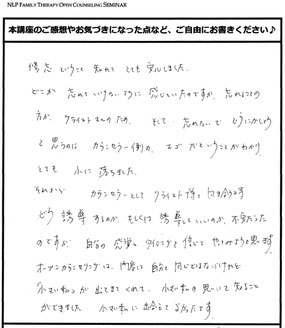 NLP FAMILY THERAPY OPEN COUNSELING SEMINAR
本講座のご感想やお気づきになった点など、ご自由にお書きください♪
ということ 知れて とても 安心しました。
どこか 忘れて いけないように 感じていたのですが、忘れることの
方が、クライエントさんのため、そして、忘れないで どうにかしよう
と思うのは カウンセラー側の、エゴ だということがわかり、
とても ふに 落ちました。
それから カウンセラーとして クライエント様と 向き合う時
どう 誘導 するのか、もしくは 誘導していいのか、不安だった
のですが 自分の 感覚、タイミングを 信じて やってみようと思います。
オープンカウンセリングは、内容に 自分と 同じではないけれど
「小さい私」が 出てきてくれて、小さい私の 思いを 知ること
ができました 小さい私に 出会えて よかったです。